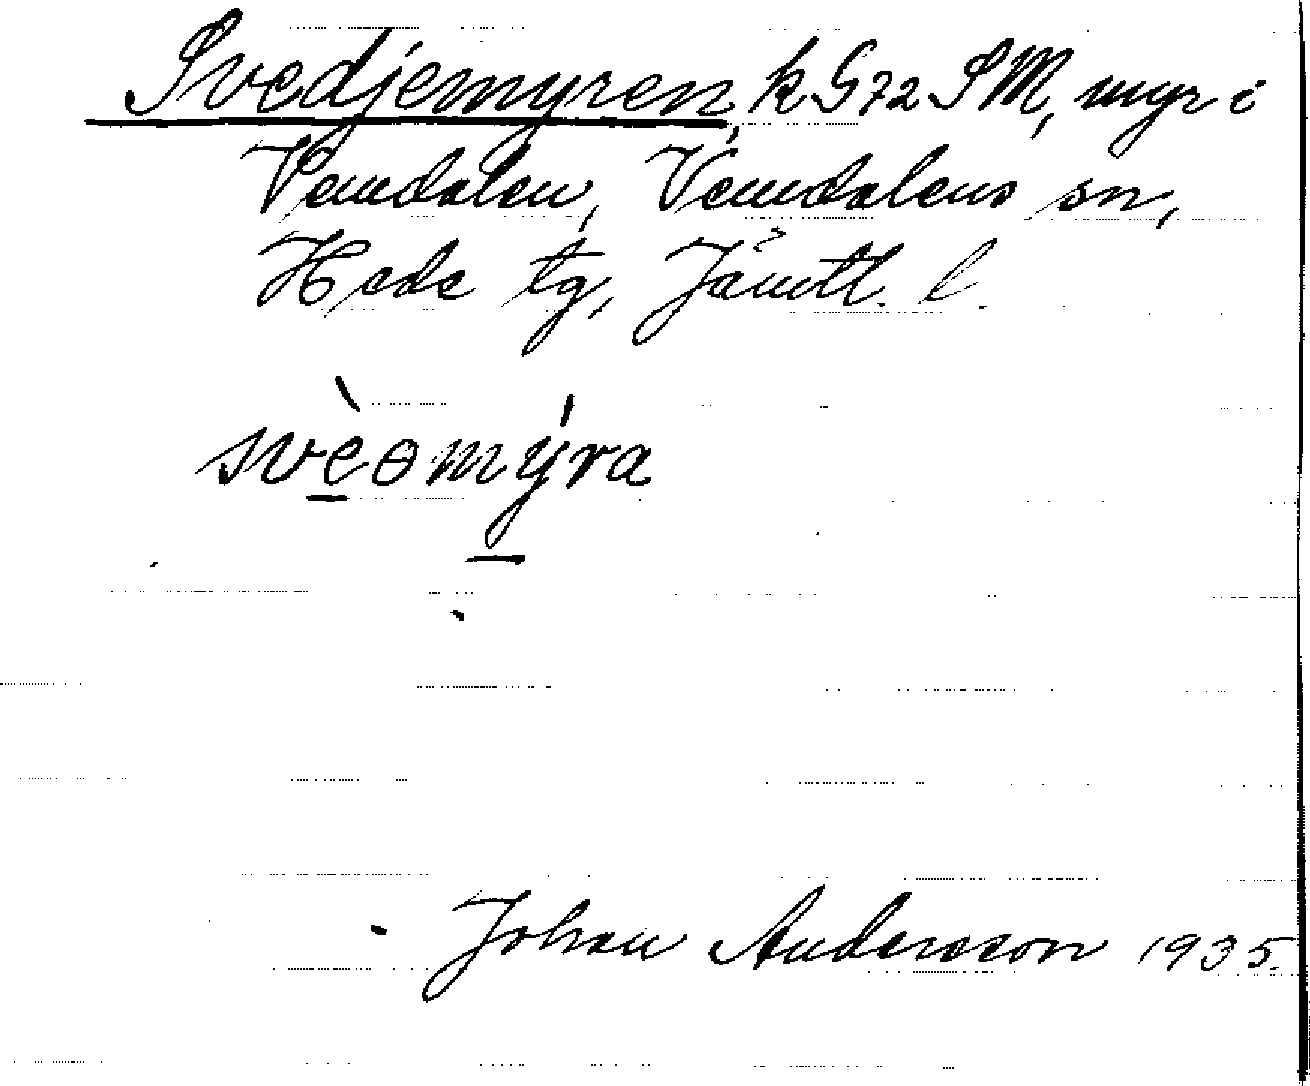 Svedjemyren, k G72 SM, myr i
Vemdalen, Vemdalens sn,
Hede tg, Jämtl. l.
svèɵmýra
Johan Andersson 1935.